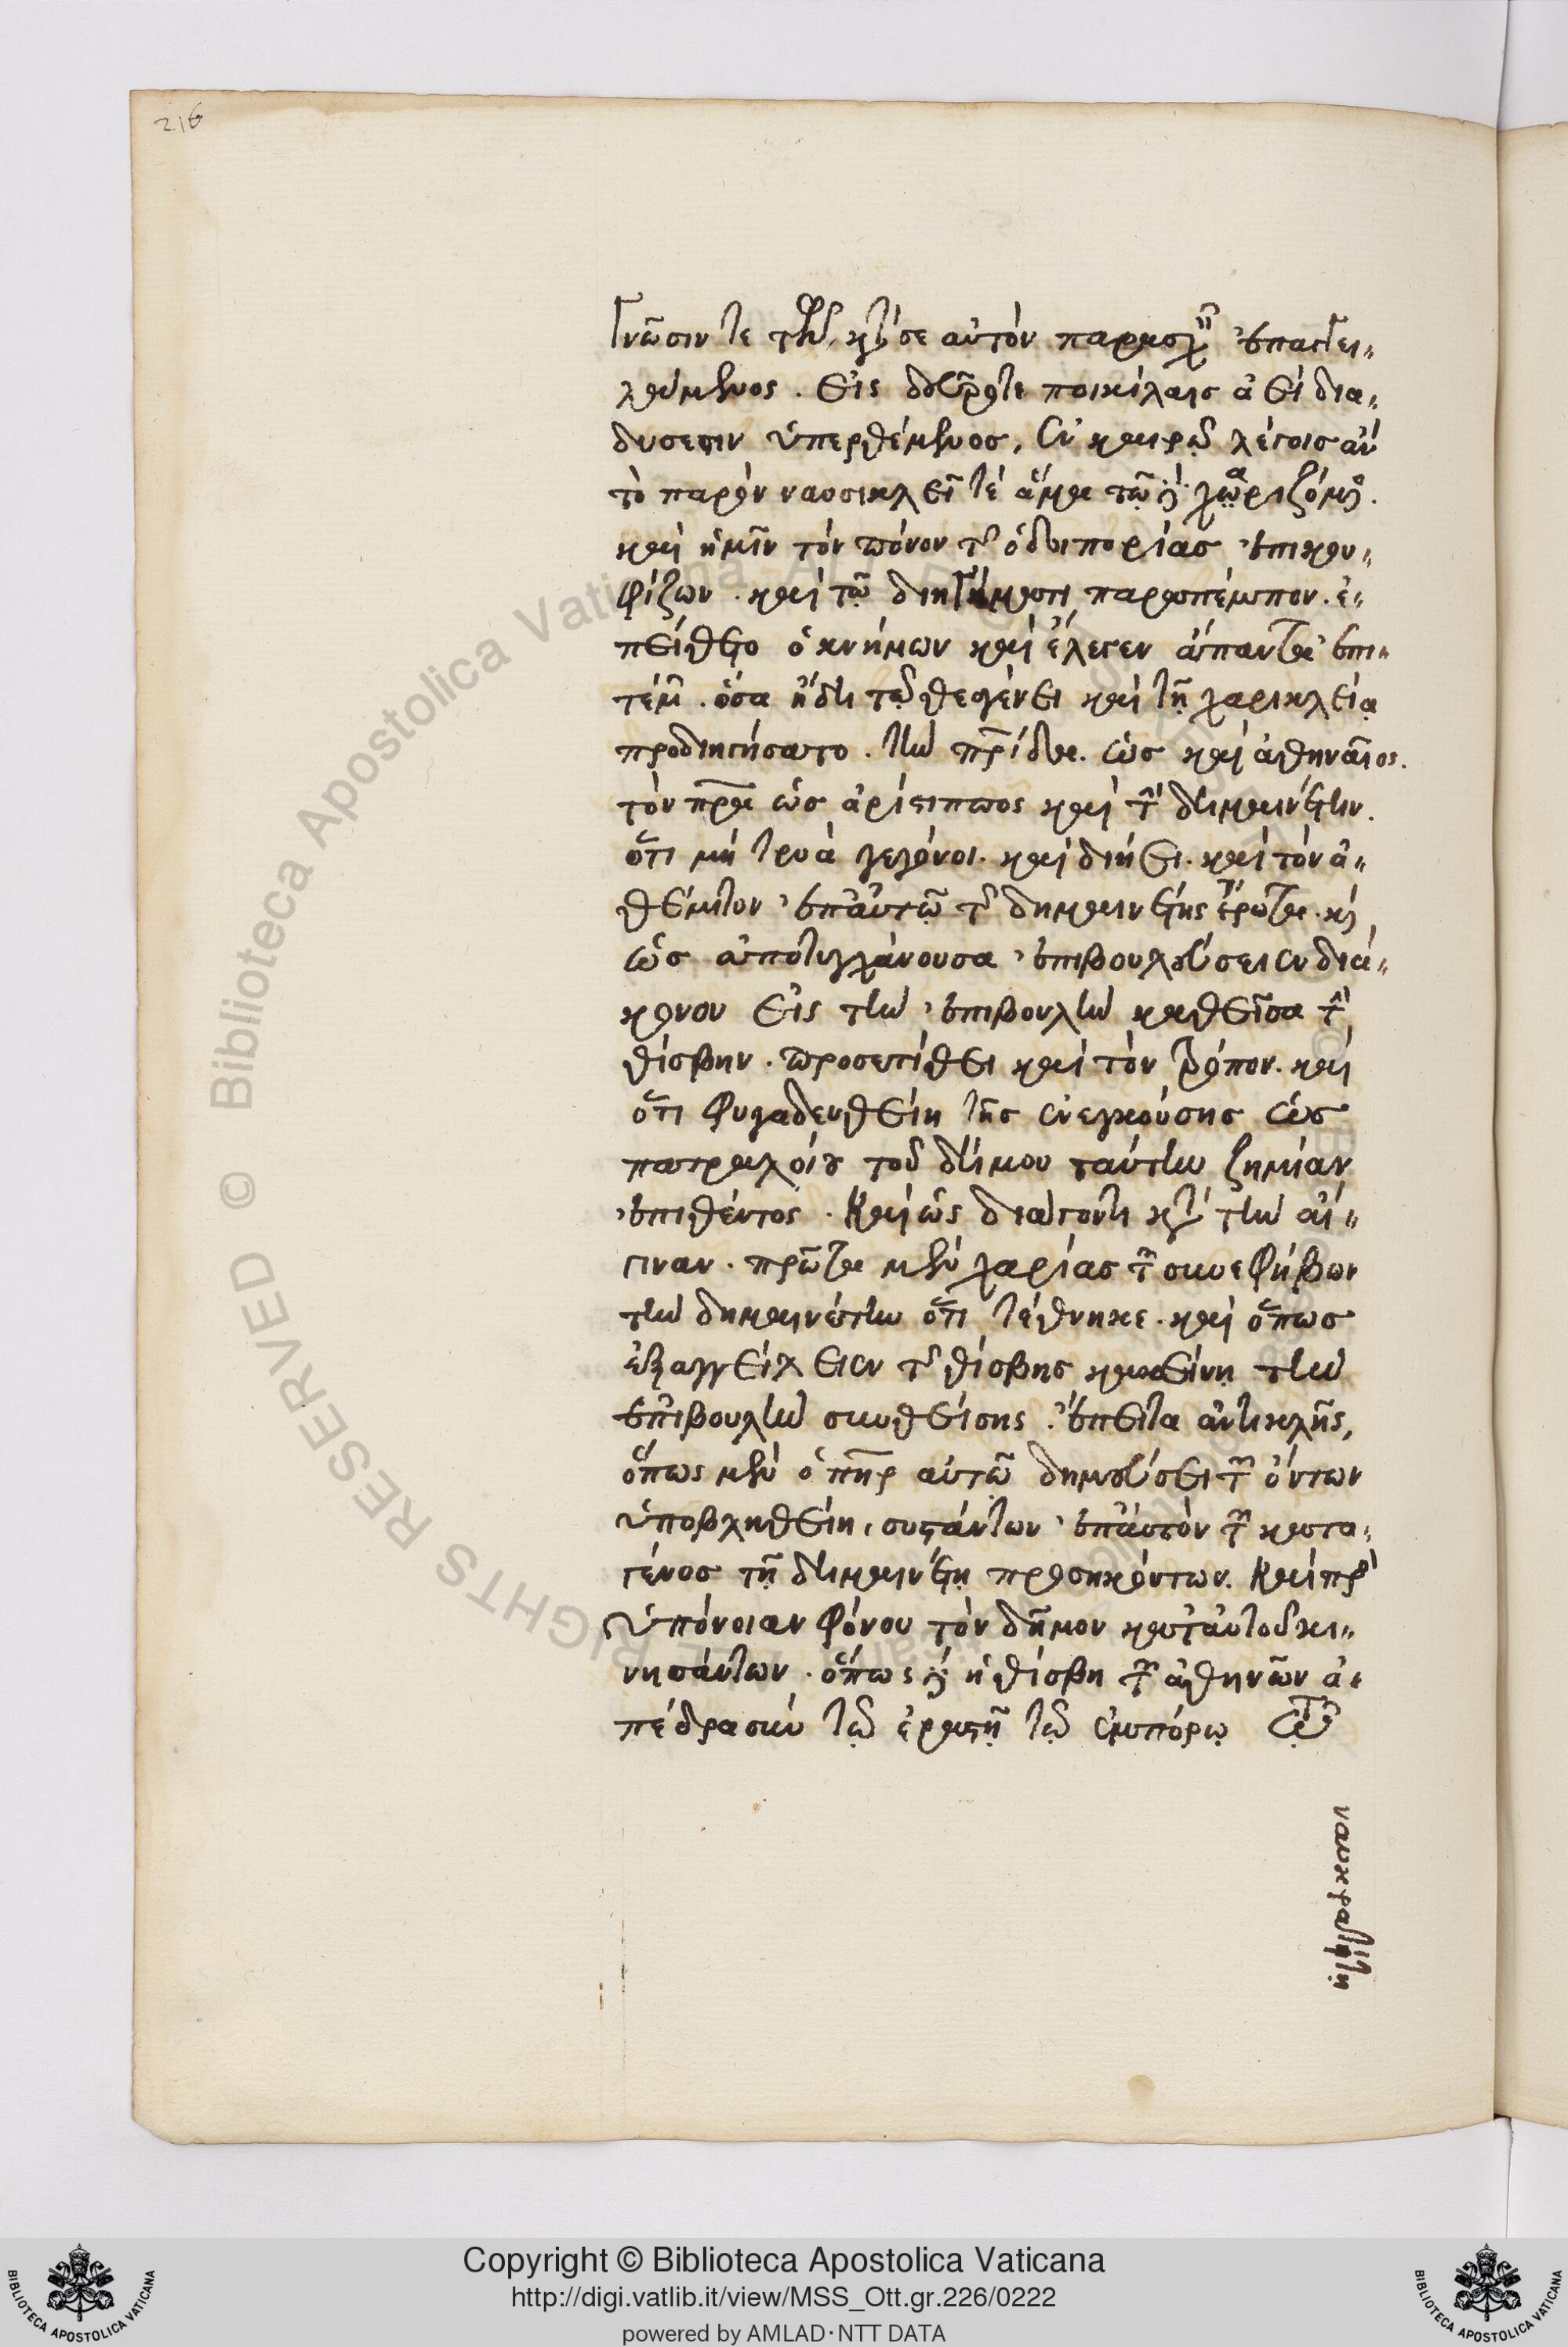 216
γνῶσίν τε τὴν κατὰ σὲ αὐτὸν παρασχεῖν ἐπαγγει-
λάμενος. εἰς δεῦρό τε ποικίλαις ἀεὶ δια-
δύσεσιν ὑπερθέμενος, ἐν καιρῷ λέγοις ἂν
τὸ παρὸν ναυσικλεῖ τὲ ἅμα τῷδὲ χαριζόμενος.
καὶ ἡμῖν τὸν πόνον τῆς ὁδοιπορίας ἐπικου-
φίζων. καὶ τῷ διηγήματι παραπέμπων. ἐ-
πείθετο ὁ κνήμων καὶ ἔλεγεν ἅπαντα ἐπι-
τεμὼν. ὅσα ἤδη τῷ θεαγένει καὶ τῇ χαρικλείᾳ
προδιηγήσατο. τὴν πατρίδα. ὡς καὶ ἀθηναῖος.
τὸν πατέρα ὡς ἀρίστιππος καὶ τὴν δημαινέτην.
ὅτι μητρυιὰ γεγόνοι. καὶ διῄει. καὶ τὸν ἀ-
θέμιτον ἐπ' αὐτῷ τῆς δημαινέτης ἔρωτα. καὶ
ὡς ἀποτυγχάνουσα ἐπιβουλεύσειεν διά-
κονον εἰς τὴν ἐπιβουλὴν καθεῖσα τὴν
θίσβην. προσετίθει καὶ τὸν τρόπον. καὶ
ὅτι φυγαδευθείη τῆς ἐνεγκούσης ὡς
πατραλοίᾳ τοῦ δήμου ταύτην ζημίαν
ἐπιθέντος. καὶ ὡς διάγοντι κατὰ τὴν αἴ-
γιναν. πρῶτα μὲν χαρίας τῶν συνεφήβων
τὴν δημαινέτην ὅτι τέθνηκε. καὶ ὅπως
ἐξαγγείλειεν τῆς θίσβης κἀκείνῃ τὴν
ἐπιβουλὴν συνθείσης. ἔπειτα ἀντικλῆς,
ὅπως μὲν ὁ πατὴρ αὐτῷ δημεύσει τῶν ὄντων
ὑποβληθείη, συστάντων ἐπ' αὐτὸν τῶν κατα-
γένος τῇ δημαινέτῃ προσηκόντων. καὶ πρὸς
ὑπόνοιαν φόνου τὸν δῆμον κατ' αὐτοῦ κι-
νησάντων. ὅπως δὲ ἡ θίσβη τῶν ἀθηνῶν ἀ-
πέδρα σὺν τῷ ἐραστῇ τῷ ἐμπόρῳ τῷ
ναυκρατίτῃ
Copyright © Biblioteca Apostolica Vaticana
http://digi.vatlib.it/view/MSS_Ott.gr.226/0222
powered by AMLAD·NTT DATA